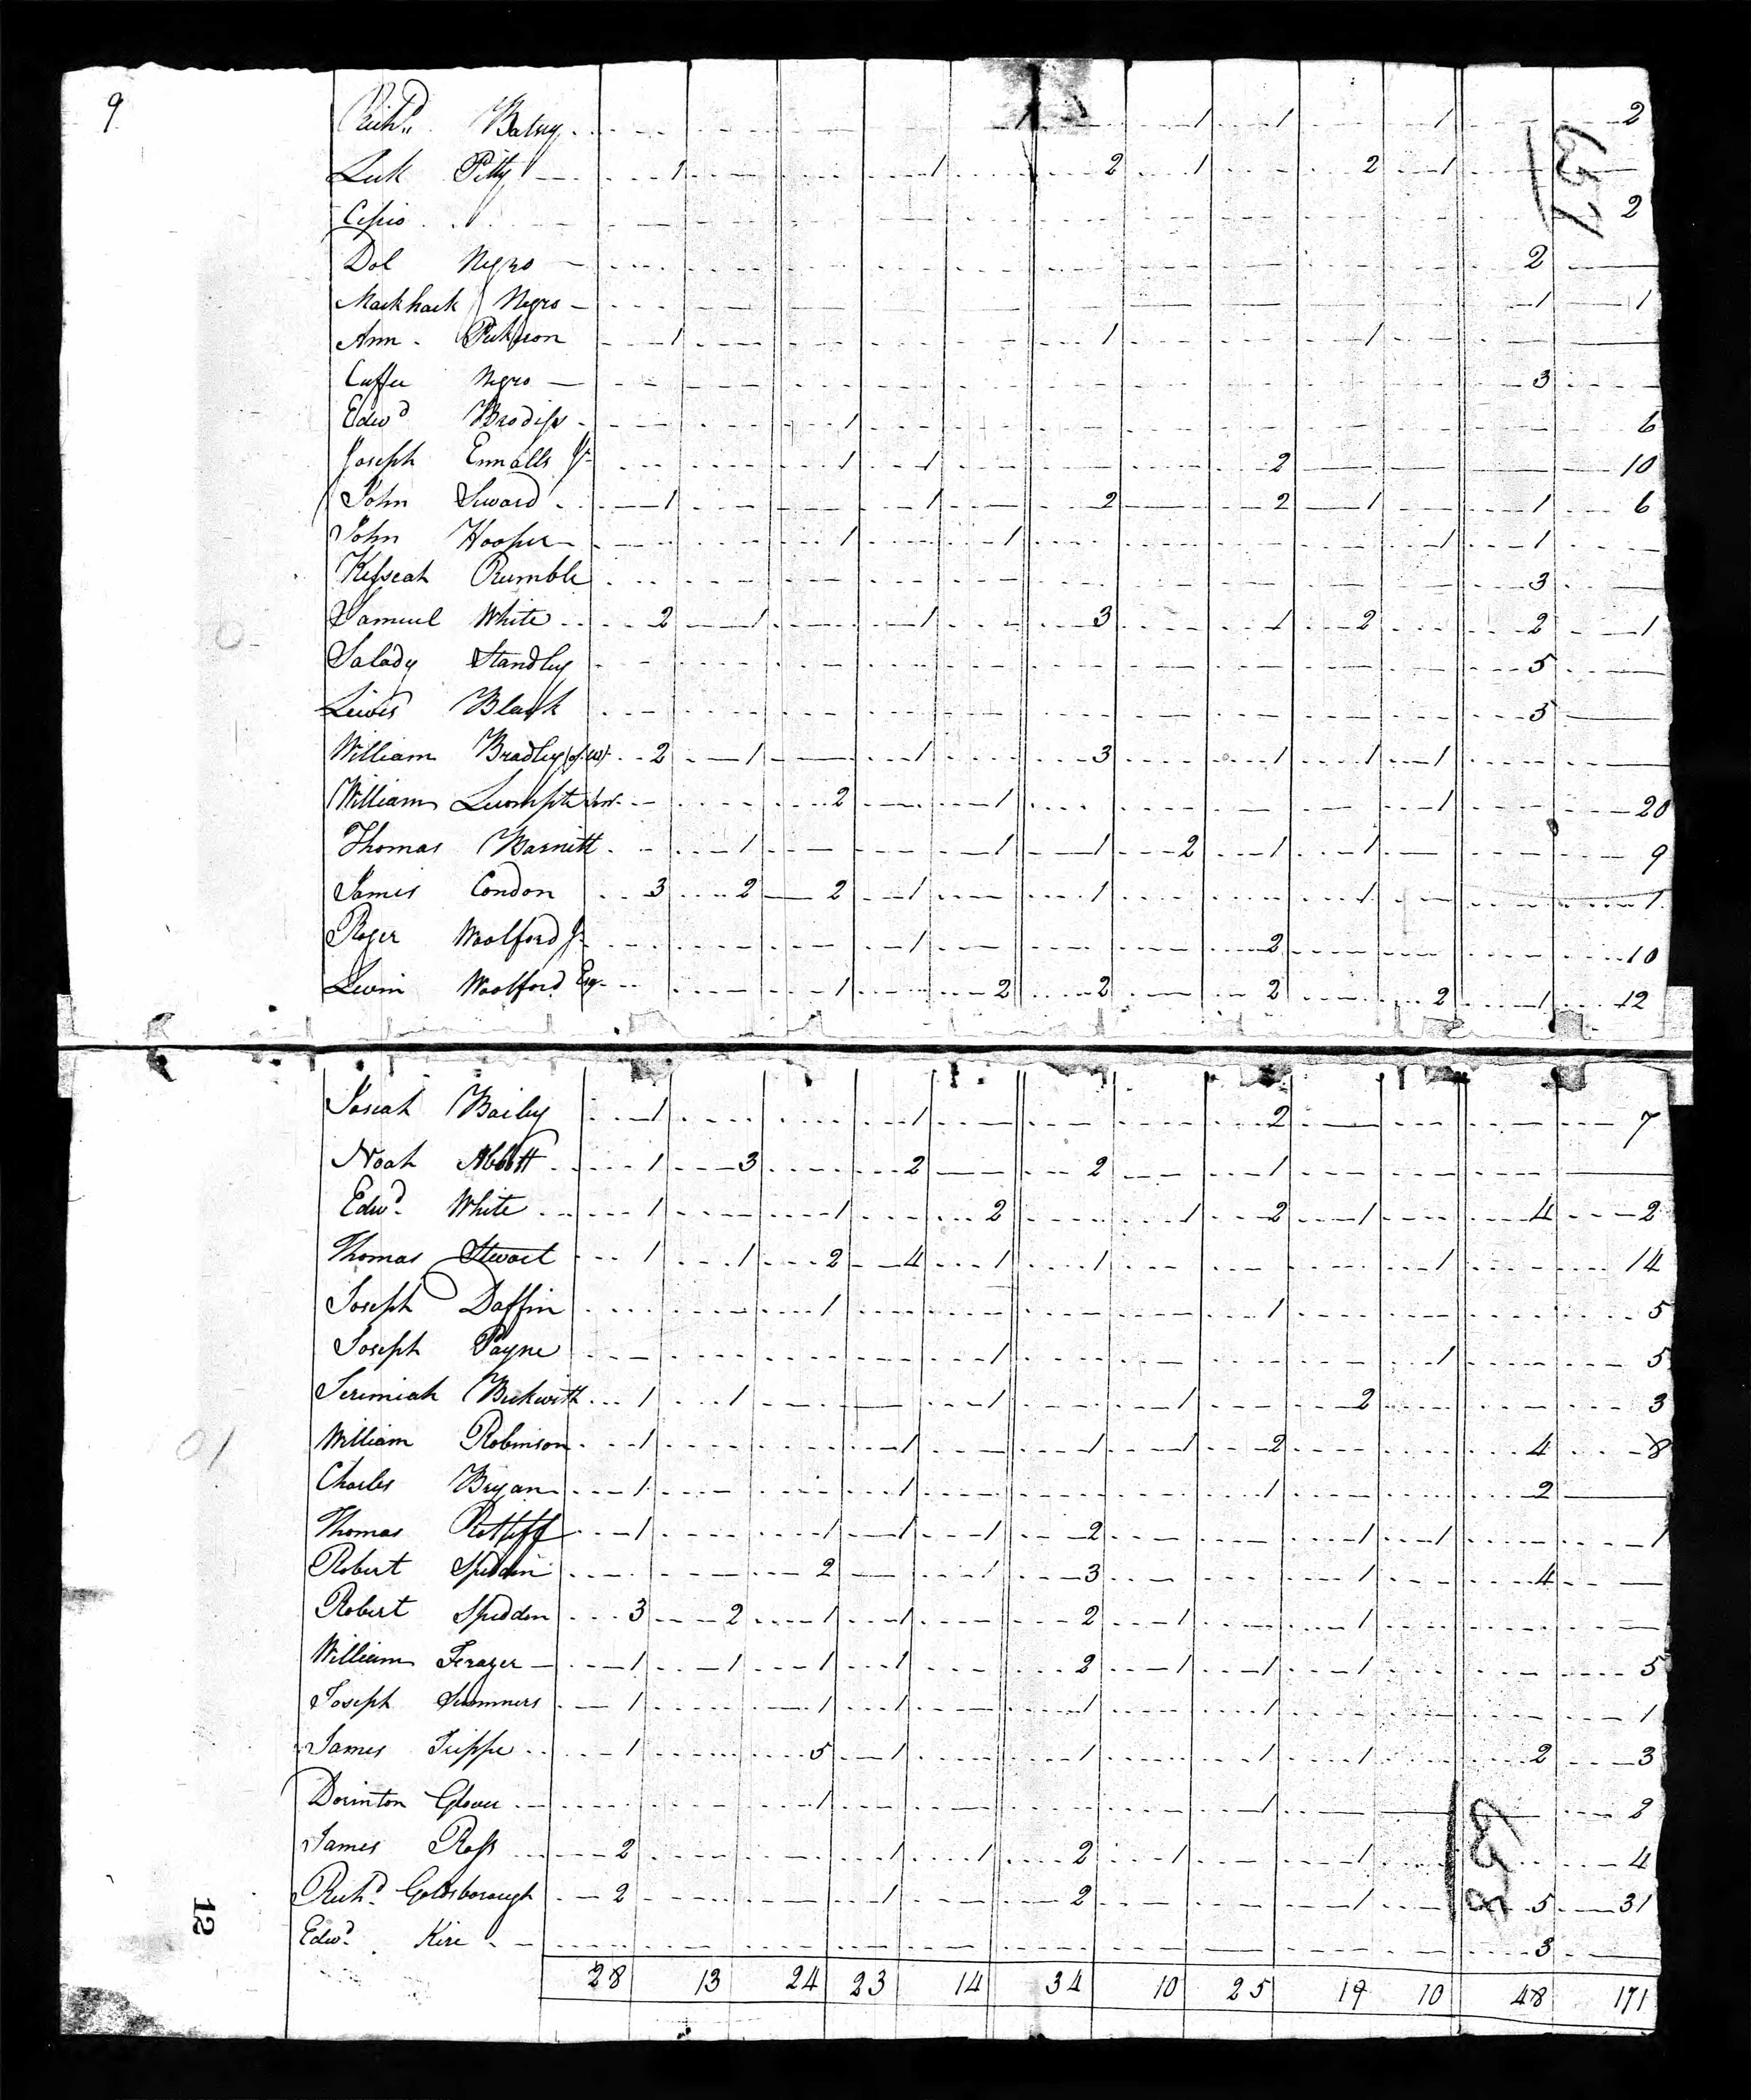 9
Richd. Batsey 1 1 1 1 2
Luk Pitty 1 1 2 1 2 1
657
2
Dol Negro 2
Negro 1 1
Ann 1 1 1
Cuffee Negro 3
Edwd 1 6
Joseph Ennalls Jr 1 1 2 10
John Seward 1 1 2 2 1 1 6
John Hooper 1 1 1 1
Rumble 3
Samuel White 2 1 1 3 1 2 2 1
Salady Standley 5
Lewis Black 3
William Bradley (of Wm) 2 1 1 3 1 1 1
William 2 1 1 20
Thomas Barnett 1 1 1 2 1 1 9
James Condon 3 2 2 1 1 1 1
Roger Woolford Jr 1 2 10
Levin Woolford Esq. 1 2 2 2 2 1 12
Josiah Bailey 1 1 2 7
Noah Abbott 1 3 2 2 1
Edwd. White 1 1 2 1 2 1 4 2
Thomas Stewart 1 1 2 4 1 1 1 14
Joseph Daffin 1 1 5
Joseph Payne 1 1 5
Jeremiah Beckwith 1 1 1 1 2 3
10
William Robinson 1 1 1 1 2 4 8
Charles Bryan 1 1 1 2
Thomas 1 1 1 1 2 1 1 1
Robert Spedden 2 1 3 1 4
Robert Spedden 3 2 1 1 2 1 1
William Frazer 1 1 1 1 2 1 1 1 5
Joseph Summers 1 1 1 1 1 1
James Trippe 1 5 1 1 1 1 2 3
Dorinton Glover 1 1 2
658
James Ross 2 1 1 2 1 1 4
Richd. Goldsborough 2 1 2 1 5 31
12
Edwd. 3
28 13 24 23 14 34 10 25 19 10 48 171